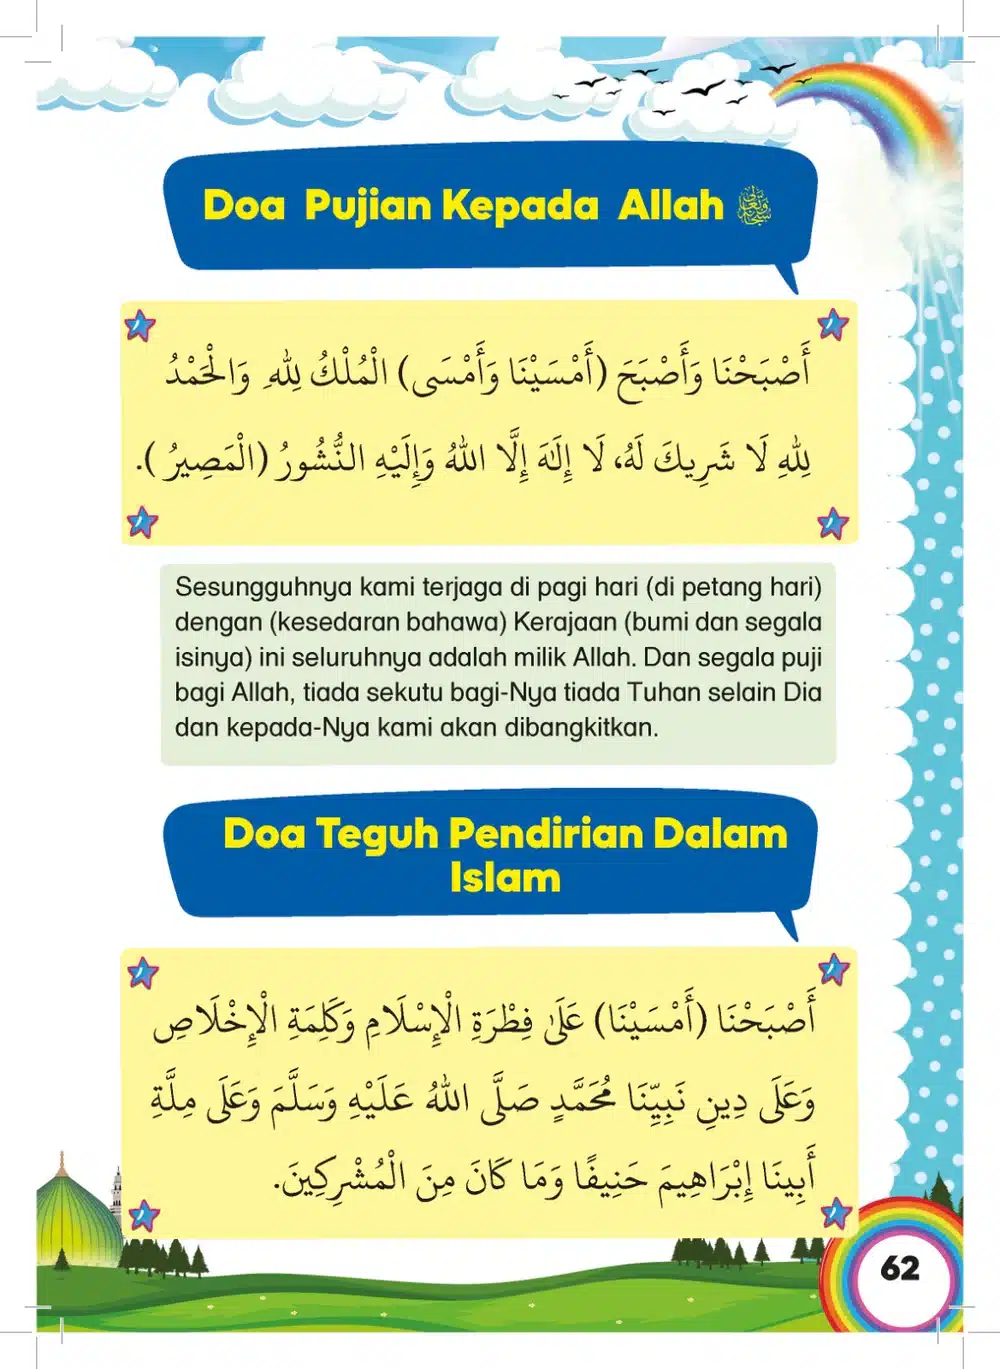 Doa Pujian Kepada Allah ﷾
أَصْبَحْنَا وَأَصْبَحَ (أَمْسَيْنَا وَأَمْسَى) الْمُلْكُ لِلّٰهِ وَالْحَمْدُ
لِلّٰهِ لَا شَرِيكَ لَهُ، لَا إِلٰهَ إِلَّا اللّٰهُ وَإِلَيْهِ النُّشُورُ (الْمَصِيرُ).
Sesungguhnya kami terjaga di pagi hari (di petang hari)
dengan (kesedaran bahawa) Kerajaan (bumi dan segala
isinya) ini seluruhnya adalah milik Allah. Dan segala puji
bagi Allah, tiada sekutu bagi-Nya tiada Tuhan selain Dia
dan kepada-Nya kami akan dibangkitkan.
Doa Teguh Pendirian Dalam
Islam
أَصْبَحْنَا (أَمْسَيْنَا) عَلَىٰ فِطْرَةِ الْإِسْلَامِ وَكَلِمَةِ الْإِخْلَاصِ
وَعَلَى دِينِ نَبِيِّنَا مُحَمَّدٍ صَلَّى اللّٰهُ عَلَيْهِ وَسَلَّمَ وَعَلَى مِلَّةِ
أَبِينَا إِبْرَاهِيمَ حَنِيفًا وَمَا كَانَ مِنَ الْمُشْرِكِينَ.
62